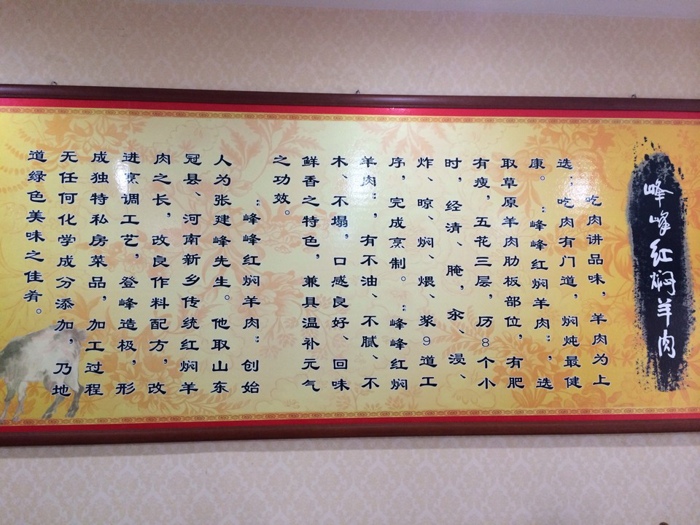 峰峰红焖羊肉
吃肉讲品味，羊肉为上
选，吃肉有门道，焖炖最健
康。“峰峰红焖羊肉”，选
取草原羊肉肋板部位，有肥
有瘦，五花三层，历8个小
时，经清、腌、汆、浸、
炸、晾、焖、煨、浆9道工
序，完成烹制。“峰峰红焖
羊肉”，有不油、不腻、不
木、不塌，口感良好、回味
鲜香之特色，兼具温补元气
之功效。
“峰峰红焖羊肉”创始
人为张建峰先生。他取山东
冠县、河南新乡传统红焖羊
肉之长，改良作料配方，改
进烹调工艺，登峰造极，形
成独特私房菜品，加工过程
无任何化学成分添加，乃地
道绿色美味之佳肴。